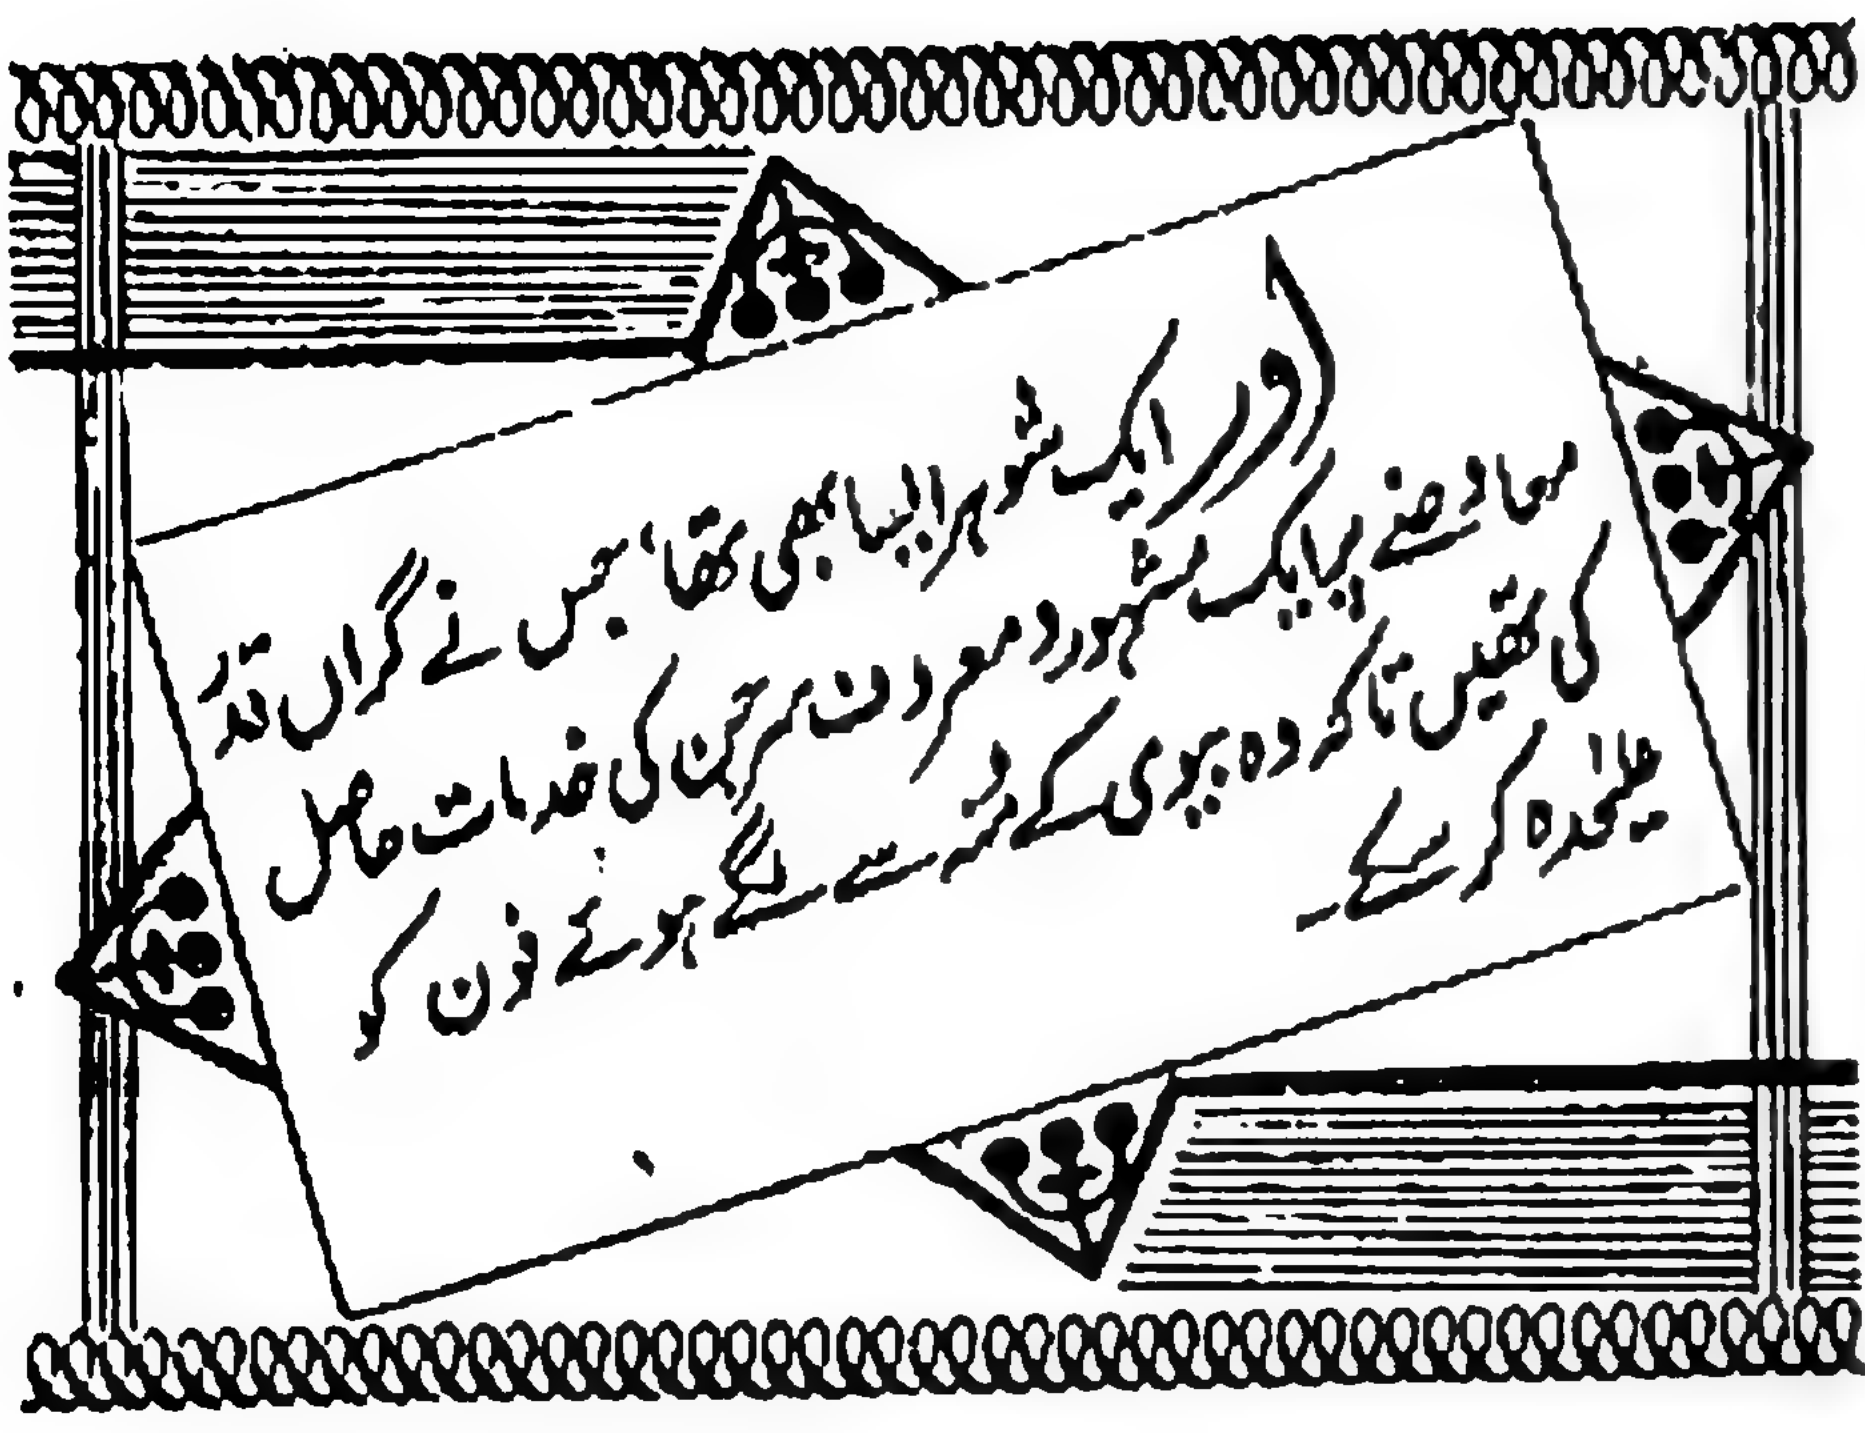 اور ایک شوہر ایسا بھی تھا، جس نے گراں قدر
معاوضے پر ایک مشہور و معروف سرجن کی خدمات حاصل
کی تھیں تاکہ وہ بیوی کے کے سے لگے ہوئے فون کو
علیٰحدہ کر سکے ـ